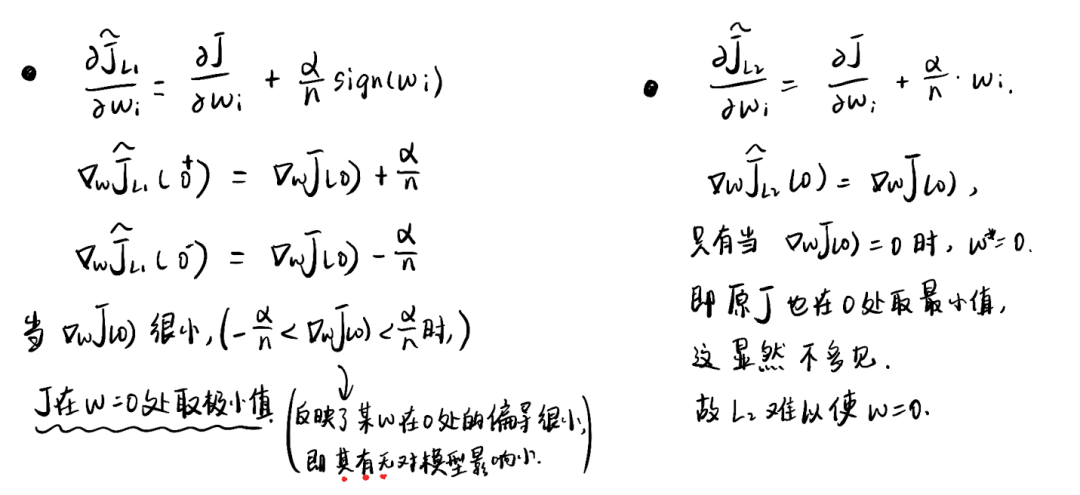 • ∂J̃_L1/∂w_i = ∂J/∂w_i + α/n sign(w_i)
∇_w J̃_L1(0⁺) = ∇_w J(0) + α/n
∇_w J̃_L1(0⁻) = ∇_w J(0) - α/n
当 ∇_w J(0) 很小, (-α/n < ∇_w J(0) < α/n 时,)
J在w=0处取极小值
(反映了某w在0处的偏导很小,
即其有无对模型影响小.)
• ∂J̃_L2/∂w_i = ∂J/∂w_i + α/n · w_i.
∇_w J̃_L2(0) = ∇_w J(0),
只有当 ∇_w J(0) = 0 时, w*=0.
即原J也在0处取最小值,
这显然不多见.
故L2难以使w=0.